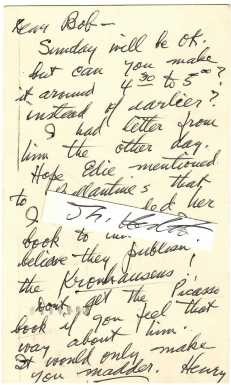 Dear Bob—
Sunday will be O.K.
but can you make
it around 4 30 to 5 00?
instead of earlier?
I had letter from
him the other day.
Hope Edie mentioned
to Ballantine's that
I her
book to
believe they publish
the Kronhausens!
Don't get the Picasso
book if you feel that
way about him.
It would only make
you madder. Henry